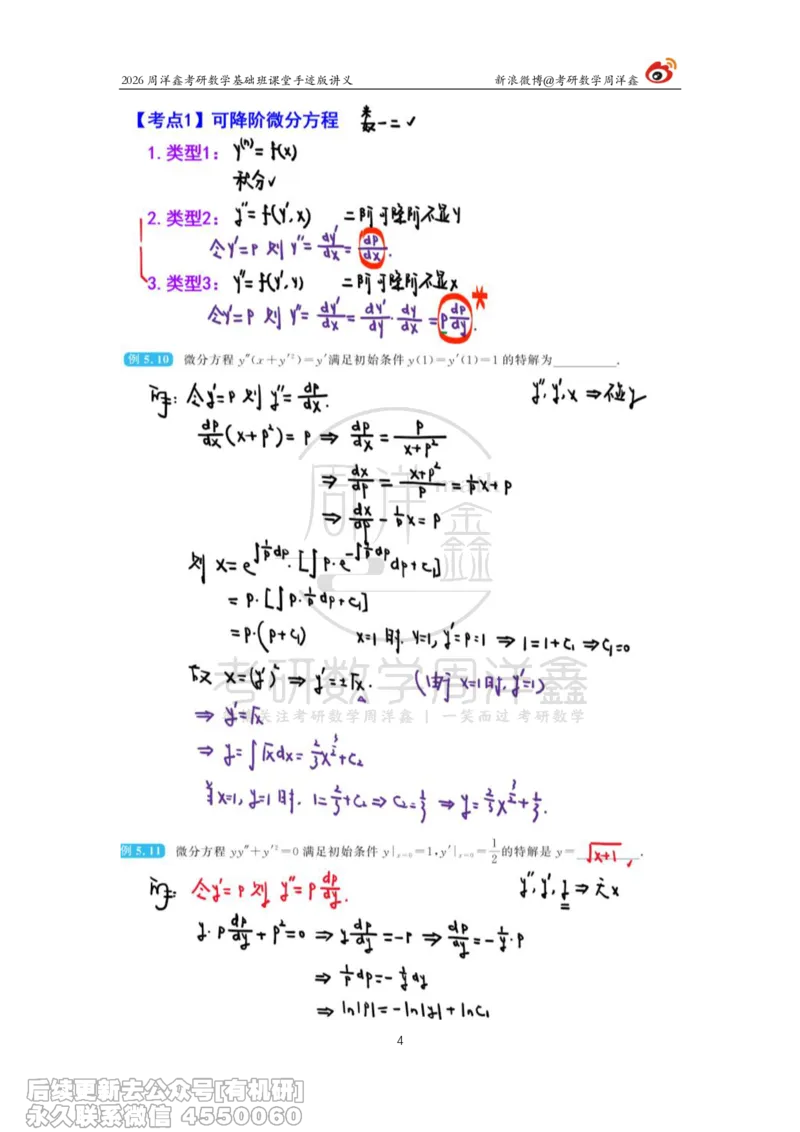 2026 周洋鑫考研数学基础班课堂手迹版讲义 新浪微博@考研数学周洋鑫
【考点1】可降阶微分方程 数一二✓
1.类型1: y⁽ⁿ⁾=f(x)
积分✓
2.类型2: y″=f(y′,x) 二阶可降阶不显y
令y′=p 则 y″=dy′/dx=dp/dx.
3.类型3: y″=f(y′,y) 二阶可降阶不显x
令y′=p 则 y″=dy′/dx=dy′/dy·dy/dx=p dp/dy.
例 5.10 微分方程 y″(x+y′²)=y′满足初始条件 y(1)=y′(1)=1 的特解为________.
解: 令y′=p 则 y″=dp/dx. y″,y′,x ⇒
dp/dx(x+p²)=p ⇒ dp/dx=p/(x+p²)
⇒ dx/dp=(x+p²)/p=1/p x+p
⇒ dx/dp-1/p x=p
则 x=e^(∫1/p dp)·[∫p·e^(-∫1/p dp)dp+c₁]
=p·[∫p·1/p dp+c₁]
=p·(p+c₁) x=1时, y=1, y′=p=1 ⇒ 1=1+c₁ ⇒c₁=0
故 x=(y′)²⇒ y′=±√x. (由于 x=1时, y′=1)
⇒ y′=√x
关注考研数学周洋鑫 | 一笑而过 考研数学
⇒ y=∫√x dx=2/3 x^(3/2)+c₂
当x=1, y=1时, 1=2/3+c₂⇒c₂=1/3 ⇒y=2/3 x^(3/2)+1/3.
例 5.11 微分方程 yy″+y′²=0 满足初始条件 y|ₓ₌₀=1,y′|ₓ₌₀=1/2的特解是 y=√(x+1)✓.
解: 令y′=p 则 y″=p dp/dy. y″,y′,y⇒无x
y·p dp/dy+p²=0 ⇒y dp/dy=-p ⇒dp/dy=-1/y·p
⇒1/p dp=-1/y dy
⇒ ln|p|=-ln|y|+lnc₁
4
周洋鑫math
考研数学周洋鑫
后续更新去公众号[有机研]
永久联系微信 4550060